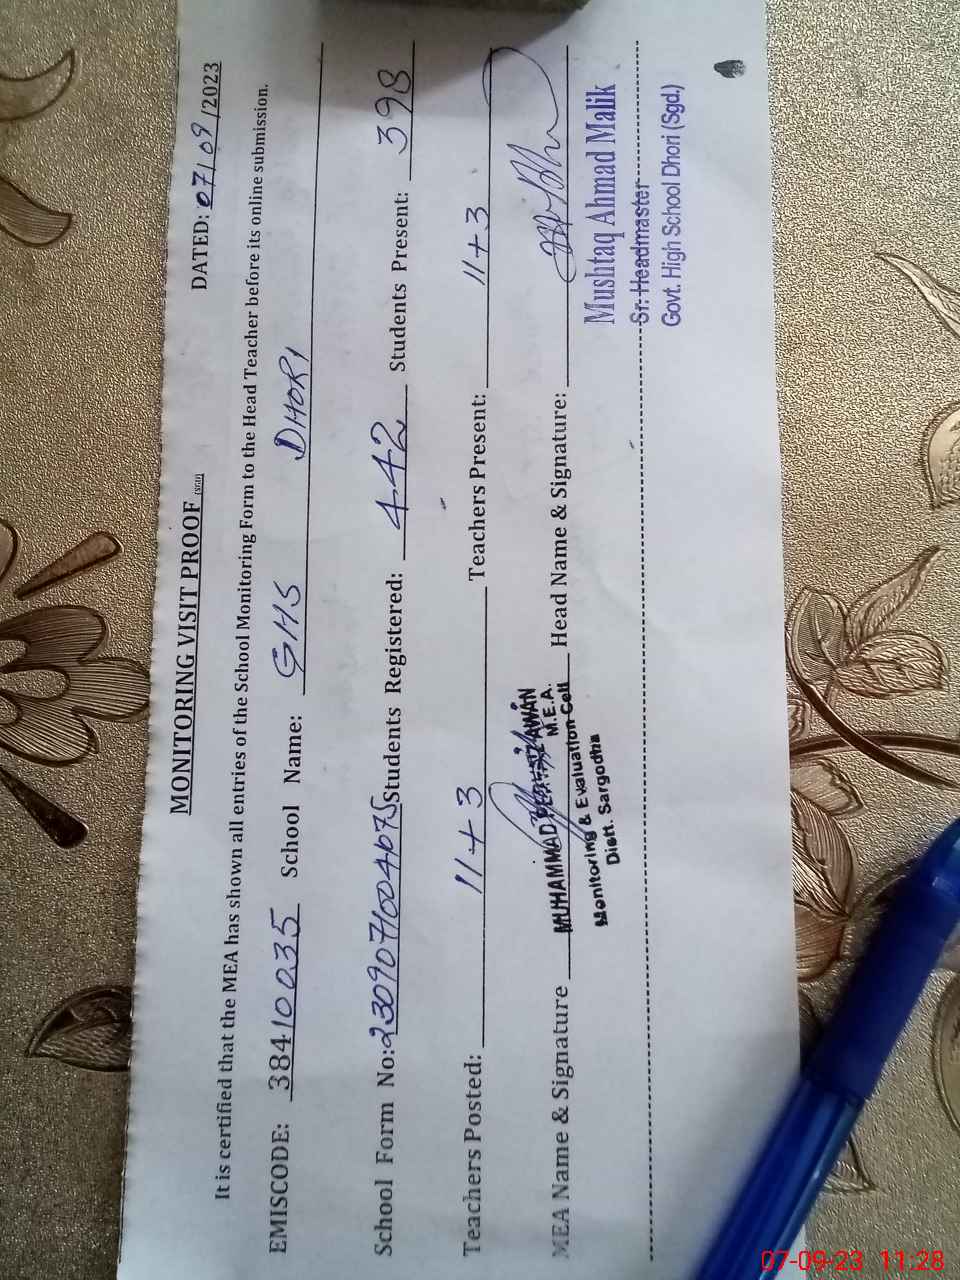 MONITORING VISIT PROOF
DATED: 07/09/2023
It is certified that the MEA has shown all entries of the School Monitoring Form to the Head Teacher before its online submission.
EMISCODE: 38410035 School Name: GHS DHORI
School Form No: Students Registered: 442 Students Present: 398
Teachers Posted: 11+3 Teachers Present: 11+3
MEA Name & Signature Head Name & Signature:
MUHAMMAD AWAN
M.E.A.
Monitoring & Evaluation Cell
Distt. Sargodha
Mushtaq Ahmad Malik
Sr. Headmaster
Govt. High School Dhori (Sgd.)
07-09-23 11:28